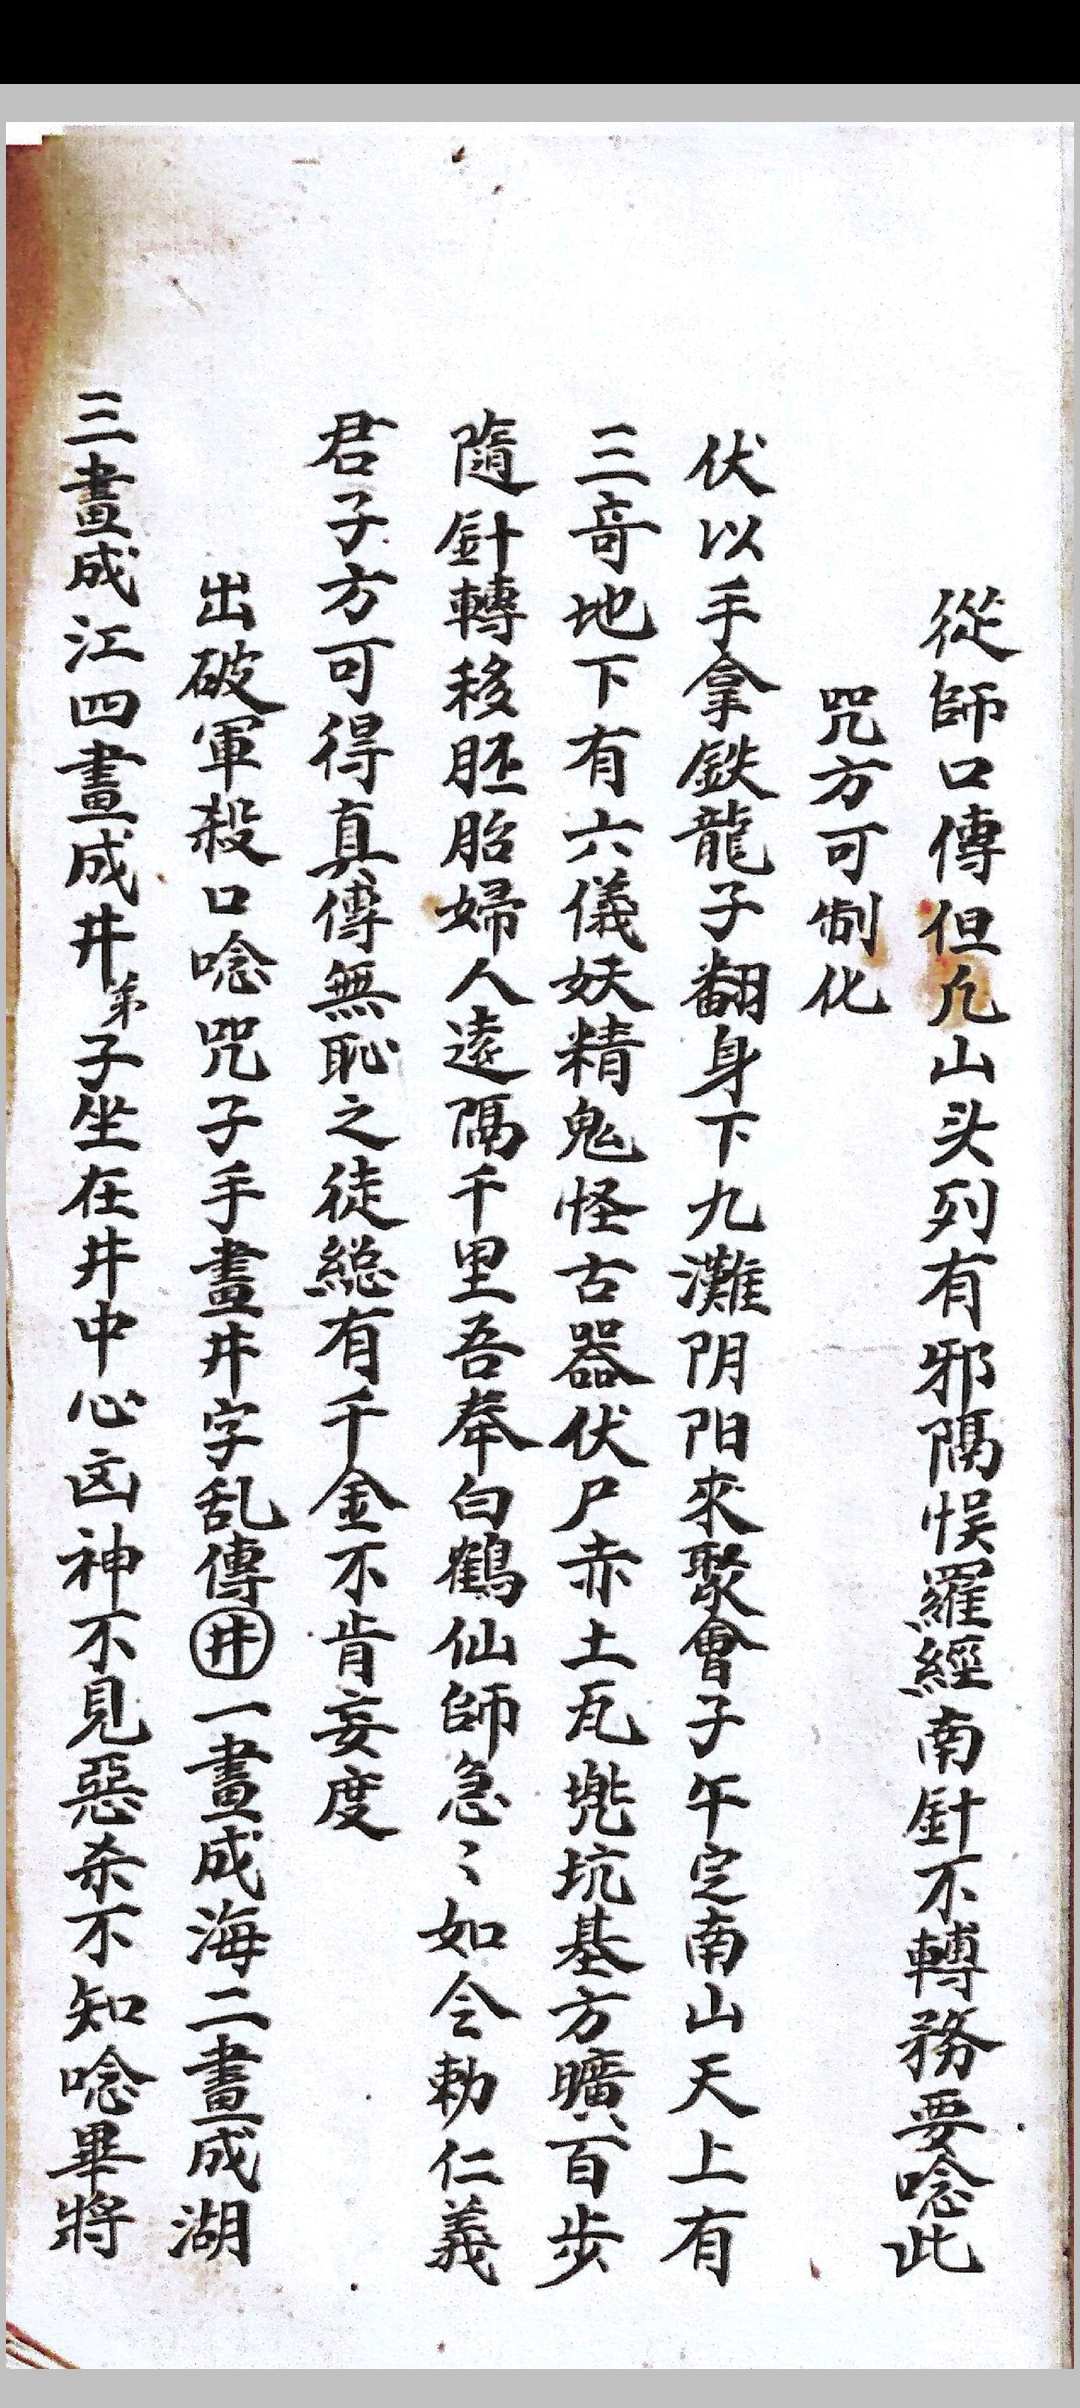 從師口傳但凡山头列有邪隅悮羅經南針不轉務要唸此
咒方可制化
伏以手拿鉄龍子翻身下九灘阴阳來聚會子午定南山天上有
三竒地下有六儀妖精鬼怪古器伏尸赤土瓦坑基方曠百步
隨針轉移胚胎婦人遠隅千里吾奉白鶴仙師急〻如令勅仁義
君子方可得真傳無恥之徒総有千金不肯妄度
出破軍殺口唸咒子手畫井字乱傳井一畫成海二畫成湖
三畫成江四畫成井弟子坐在井中心凶神不見惡杀不知唸畢將